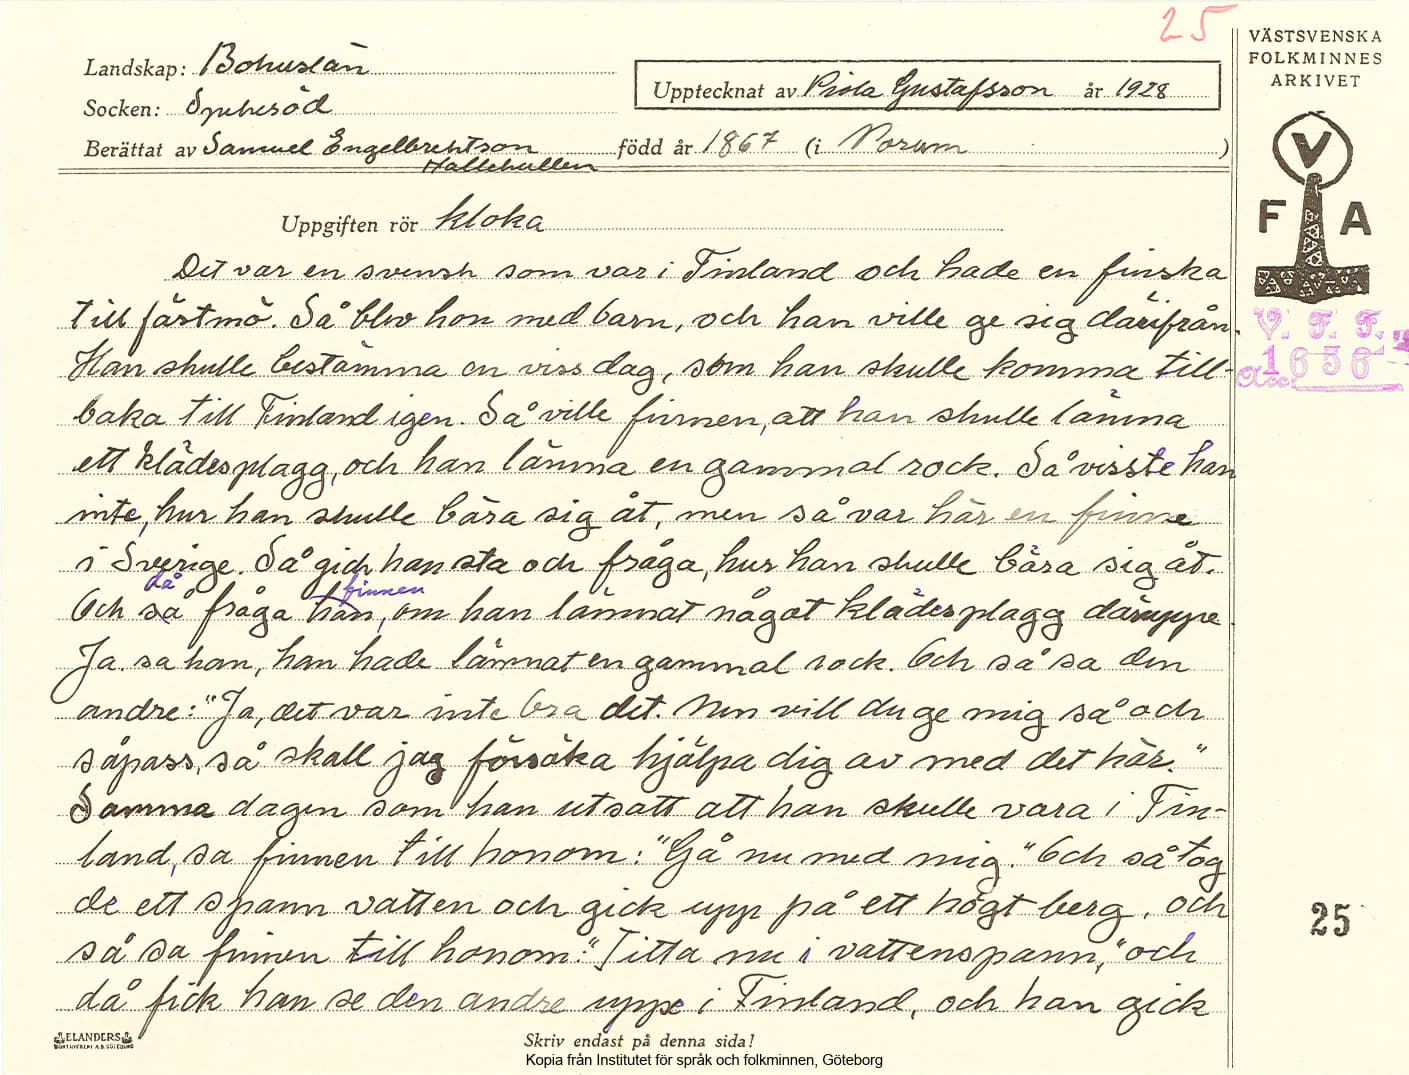 25
VÄSTSVENSKA
FOLKMINNES
ARKIVET
Landskap: Bohuslän
Socken: Spekeröd
Upptecknat av Viola Gustafsson år 1928
Berättat av Samuel Engelbrektson född år 1867 (i Norum)
Hallehullen
V
F A
Uppgiften rör kloka
Det var en svensk som var i Finland och hade en finska
till fästmö. Så blev hon med barn, och han ville ge sig därifrån.
Han skulle bestämma en viss dag, som han skulle komma till-
baka till Finland igen. Så ville finnen, att han skulle lämna
ett klädesplagg, och han lämna en gammal rock. Så visste han
inte, hur han skulle bära sig åt, men så var här en finne
i Sverige. Så gick han sta och fråga, hur han skulle bära sig åt.
då finnen
Och så fråga han, om han lämnat något klädesplagg däruppe.
Ja sa han, han hade lämnat en gammal rock. Och så sa den
andre: "Ja, det var inte bra det. Men vill du ge mig så och
såpass, så skall jag försöka hjälpa dig av med det här."
Samma dagen som han utsatt att han skulle vara i Fin-
land, sa finnen till honom: "Gå nu med mig." Och så tog
de ett spann vatten och gick upp på ett högt berg, och
så sa finnen till honom: "Titta nu i vattenspann," och
då fick han se den andre uppe i Finland, och han gick
V. F. F.
Acc. 1656
25
ELANDERS
Skriv endast på denna sida!
Kopia från Institutet för språk och folkminnen, Göteborg